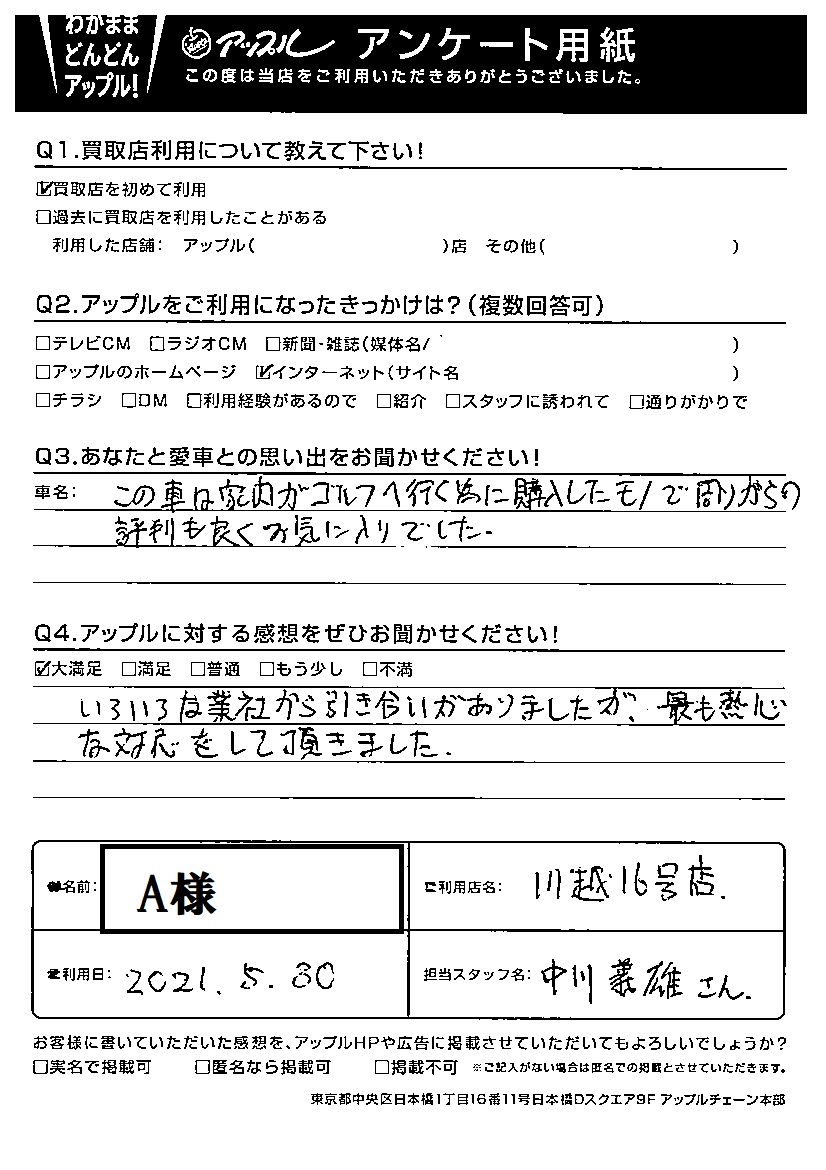 わがまま
どんどん
アップル!
アップル アンケート用紙
この度は当店をご利用いただきありがとうございました。
Q1.買取店利用について教えて下さい!
☑買取店を初めて利用
□過去に買取店を利用したことがある
利用した店舗: アップル( )店 その他( )
Q2.アップルをご利用になったきっかけは?(複数回答可)
□テレビCM □ラジオCM □新聞・雑誌(媒体名/ )
□アップルのホームページ ☑インターネット(サイト名 )
□チラシ □DM □利用経験があるので □紹介 □スタッフに誘われて □通りがかりで
Q3.あなたと愛車との思い出をお聞かせください!
車名: この車は家内がゴルフへ行く為に購入したモノで周りからの
評判も良くお気に入りでした.
Q4.アップルに対する感想をぜひお聞かせください!
☑大満足 □満足 □普通 □もう少し □不満
いろいろな業社から引き合いがありましたが、最も熱心
な対応をして頂きました.
名前: A様
ご利用店名: 川越16号店.
ご利用日: 2021.5.30
担当スタッフ名: 中川義雄さん.
お客様に書いていただいた感想を、アップルHPや広告に掲載させていただいてもよろしいでしょうか?
□実名で掲載可 □匿名なら掲載可 □掲載不可 ※ご記入がない場合は匿名での掲載とさせていただきます。
東京都中央区日本橋1丁目16番11号日本橋Dスクエア9F アップルチェーン本部